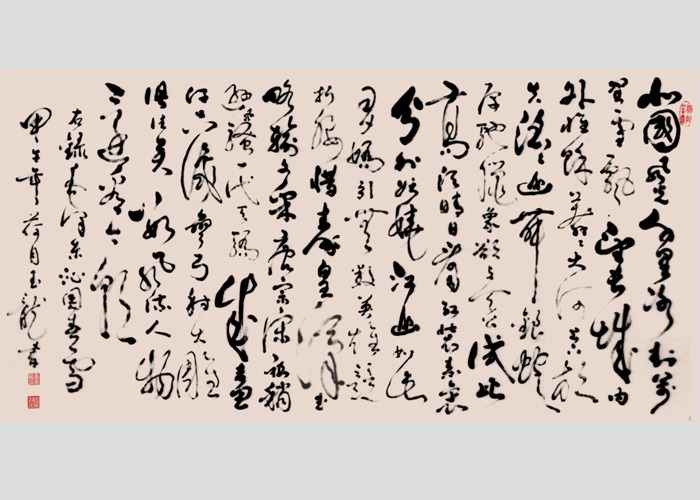 北國風光千里冰封萬
里雪飄望長城內
外惟餘莽莽大河上下頓
失滔滔山舞銀蛇
原馳蠟象欲與天公試比
高須晴日看紅裝素裹
分外妖嬈江山如此
多嬌引無數英雄競
折腰惜秦皇漢武
略輸文采唐宗宋祖稍
遜風騷一代天驕成吉
只識彎弓射大雕
俱往矣數風流人物
還看今朝
右錄毛澤東沁園春雪
甲午年荷月玉龍書